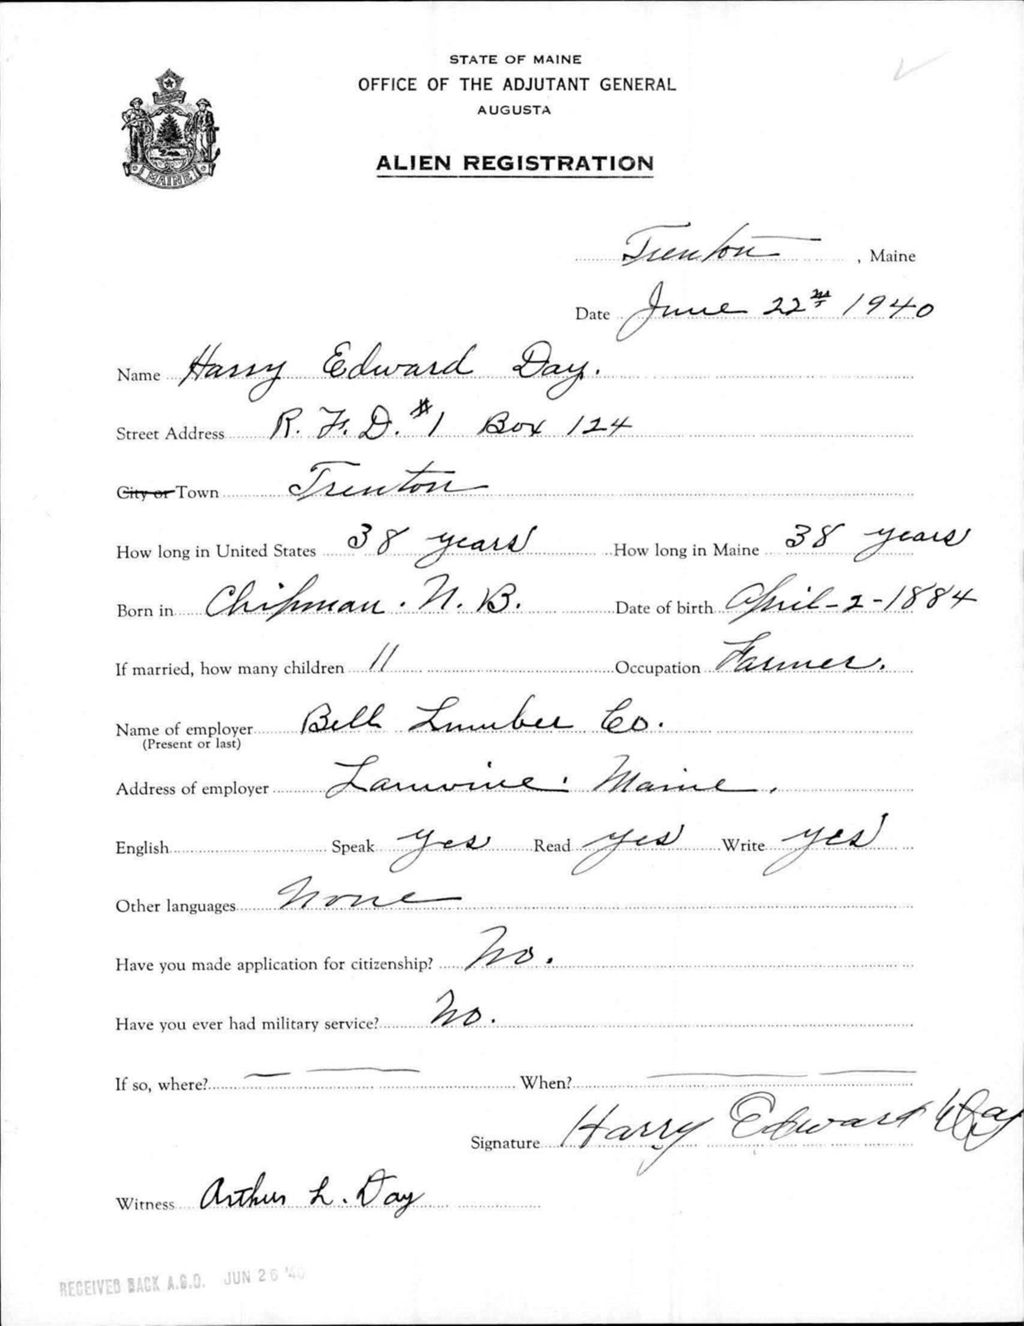 STATE OF MAINE
OFFICE OF THE ADJUTANT GENERAL
AUGUSTA
ALIEN REGISTRATION
MAINE
Trenton, Maine
Date June 22nd 1940
Name Harry Edward Day.
Street Address R. F. D. #1 Box 124
City or Town Trenton
How long in United States 38 years How long in Maine 38 years
Born in Chipman. N. B. Date of birth April-2-1884
If married, how many children 11 Occupation Farmer.
Name of employer Bell Lumber Co.
(Present or last)
Address of employer Lamoine: Maine.
English Speak yes Read yes Write yes
Other languages None
Have you made application for citizenship? No.
Have you ever had military service? No.
If so, where? — — When? — —
Signature Harry Edward Day
Witness Arthur L. Day
RECEIVED BACK A.G.O. JUN 26 '40